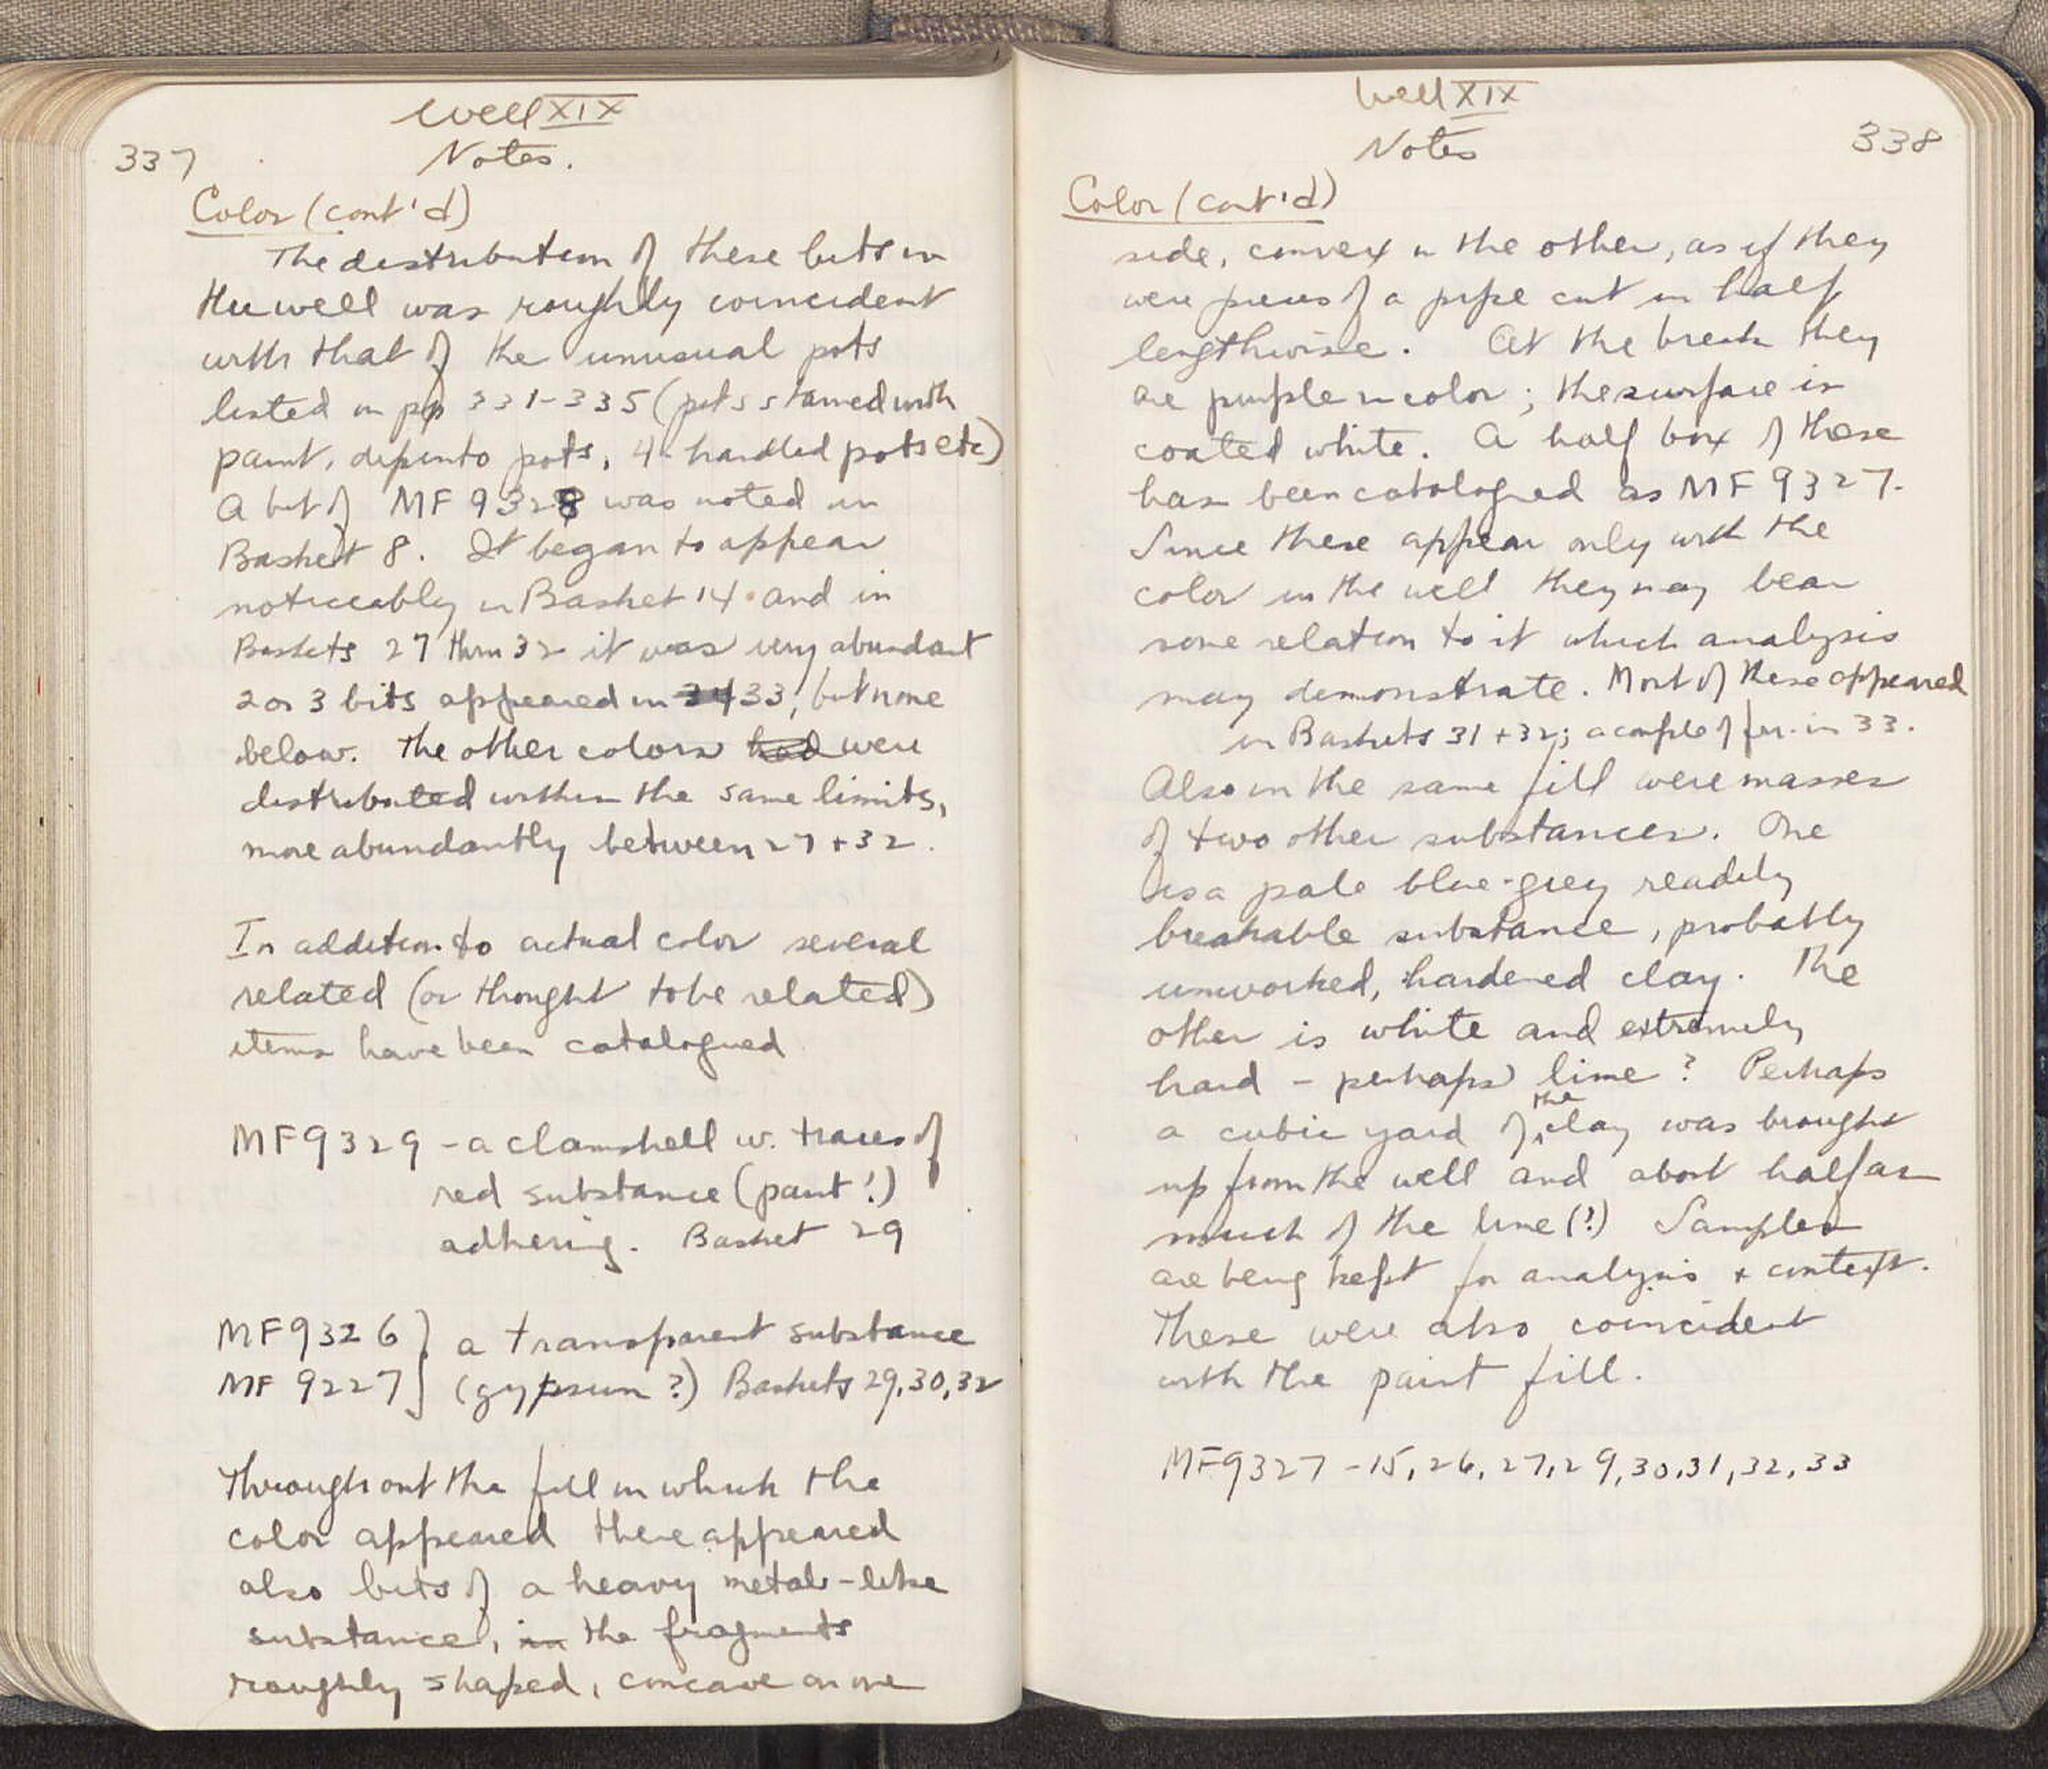 337
Well XIX
Notes.
Color (cont'd)
The distribution of these bits in
the well was roughly coincident
with that of the unusual pots
listed on pp 331-335 (pots stained with
paint, depinto pots, 4-handled pots etc)
A bit of MF 9328 was noted in
Basket 8. It began to appear
noticeably in Basket 14. and in
Baskets 27 thru 32 it was very abundant
2 or 3 bits appeared in 34 33, but none
below. The other colors had were
distributed within the same limits,
more abundantly between 27 + 32.
In addition to actual color several
related (or thought to be related)
items have been catalogued
MF9329 - a clamshell w. traces of
red substance (paint?)
adhering. Basket 29
MF9326 } a transparent substance
MF 9227 } (gypsum ?) Baskets 29,30,32
Throughout the fill in which the
color appeared there appeared
also bits of a heavy metal-like
substance, in the fragments
roughly shaped, concave on one
Well XIX
Notes
338
Color (cont'd)
side, convex on the other, as if they
were pieces of a pipe cut in half
lengthwise. At the break they
are purple in color; the surface is
coated white. A half box of these
has been catalogued as MF 9327.
Since these appear only with the
color in the well they may bear
some relation to it which analysis
may demonstrate. Most of these appeared
in Baskets 31 + 32; a couple of fr. in 33.
Also in the same fill were masses
of two other substances. One
is a pale blue-grey readily
breakable substance, probably
unworked, hardened clay. The
other is white and extremely
hard - perhaps lime? Perhaps
a cubic yard of the clay was brought
up from the well and about half as
much of the lime (?) Samples
are being kept for analysis + context.
These were also coincident
with the paint fill.
MF9327 - 15, 26, 27, 29, 30, 31, 32, 33